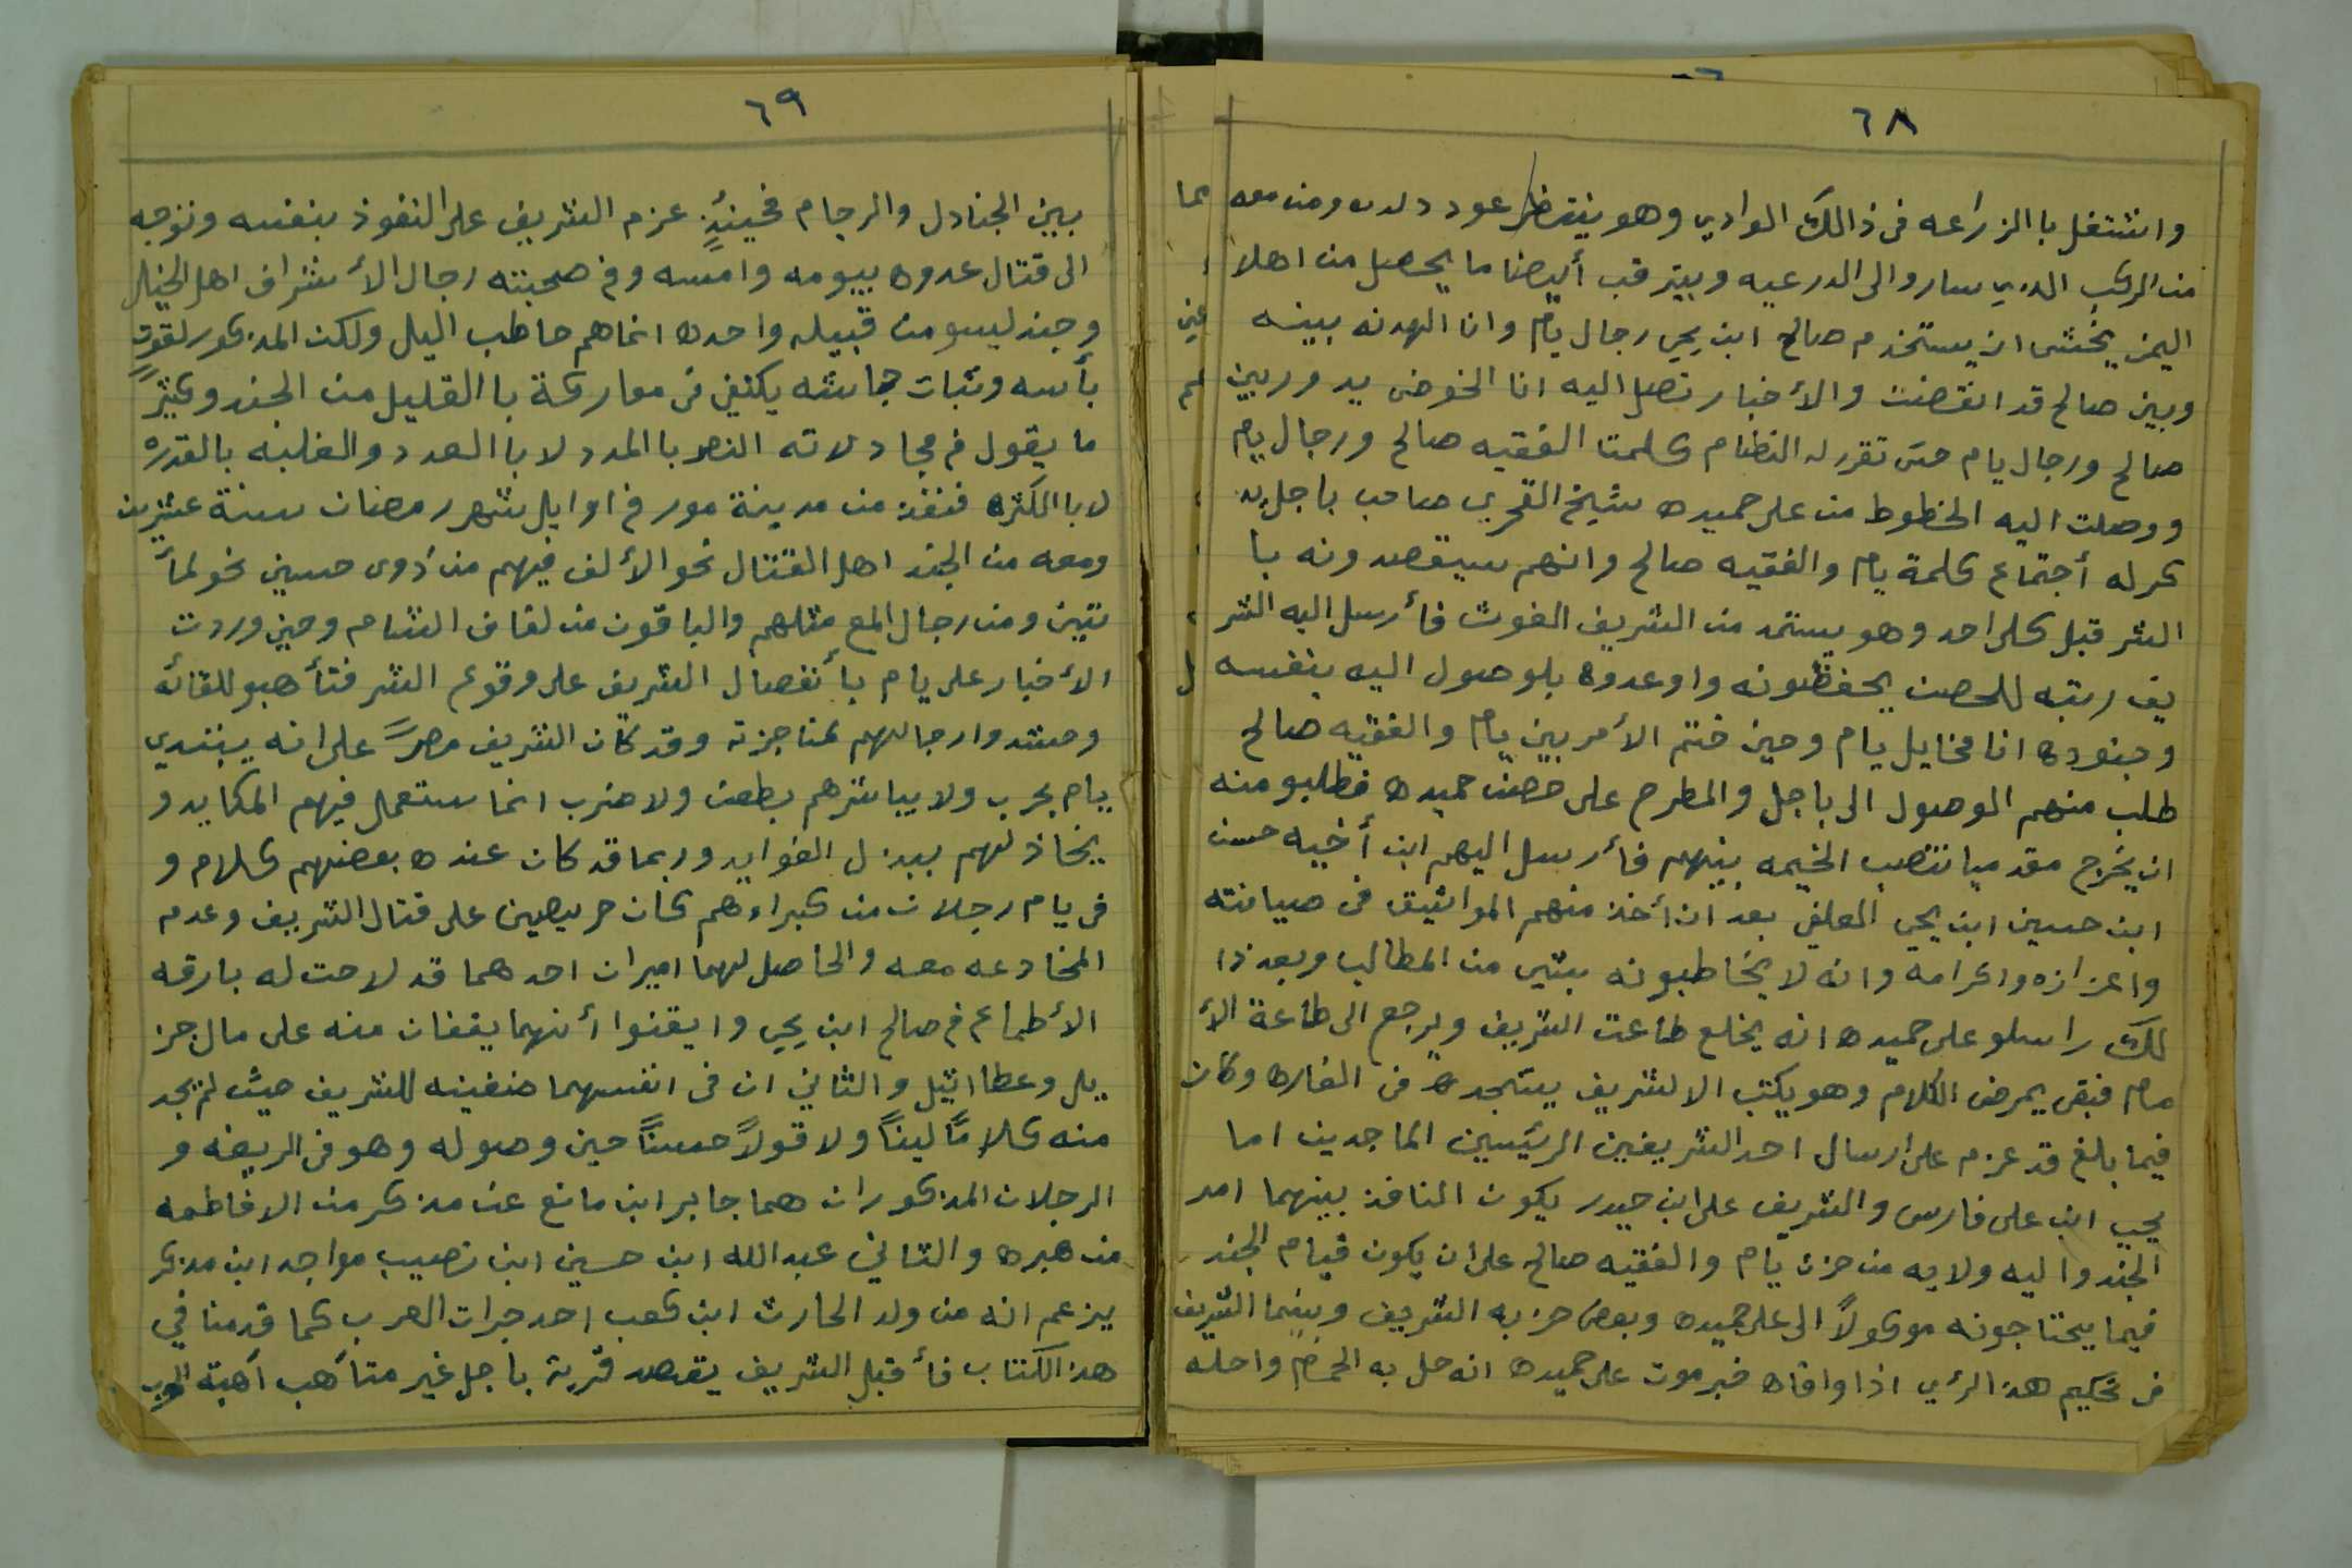 ٦٨
واشتغل با الزراعه فى ذالك الوادي وهو ينتظر عود ولده ومن معه
من الركب الذي ساروا الى الدرعيه ويترقب أيضا ما يحصل من اهلا
اليمن يخشى ان يستخدم صالح ابن يحي رجال يام وان الهدنه بينه
وبين صالح قد انقضت والأخبار تصل اليه انا الخوض يدور بين
صالح ورجال يام حتى تقرر له النظام كلمت الفقيه صالح ورجال يام
ووصلت اليه الخطوط من على حميده شيخ القحري صاحب باجل يذ
كر له أجتماع كلمة يام والفقيه صالح وانهم سيقصدونه با
الشر قبل كل احد وهو يستمد من الشريف الغوث فأرسل اليه الشر
يف رتبه للحصن يحفظونه واوعدوه بلوصول اليه بنفسه
وجنوده انا مخايل يام وحين ختم الأمر بين يام والفقيه صالح
طلب منهم الوصول الى باجل والمطرح على حصن حميده فطلبو منه
ان يخرج مقدميا تنتصب الخيمه بينهم فأرسل اليهم ابن أخيه حسن
ابن حسين ابن يحي العلفي بعد ان أخذ منهم المواثيق فى صيانته
واعزازه واكرامه وانه لا يخاطبونه بشي من المطالب وبعد ذا
لك راسلو على حميده انه يخلع طاعت الشريف ويرجع الى طاعة الأ
مام فبقى يمرض الكلام وهو يكتب الا لشريف يستنجده فى الغاره وكان
فيما بلغ قد عزم على ارسال احد الشريفين الرئيسين الماجدين اما
يحيى ابن على فارس والشريف على ابن حيدر يكون النافذ بينهما امر
الجند واليه ولايه من حزن يام والفقيه صالح على ان يكون قيام الجند
فيما يحتاجونه موكولاً الى على حميده وبعض حزبه الشريف وبينما الشريف
فى تحكيم هذ الرأي اذا وافاه خبر موت على حميده انه حل به الحمام واحله
٦٩
بين الجنادل والرجام فحينئذٍ عزم الشريف على النفوذ بنفسه وتوجه
الى قتال عدوه بيومه وامسه وفى صحبته رجال الأشراف اهل الخيل
وجند ليسو من قبيله واحده انما هم حاطب اليل ولكن المذكور لقوت
بأسه وثبات جاشه يكتفي فى معاركة با القليل من الجند وكثيرً
ما يقول فى مجادلاته النصر با المدد لا با العدد والغلبه بالقدره
لا با الكثره فنفذ من مدينة مور فى اوايل شهر رمضان سنة عشرين
ومعه من الجند اهل القتال نحو الألف فيهم من ذوى حسين نحو لمأ
تتين ومن رجال المع مثلهم والباقون من لفاف الشام وحين وردت
الأخبار على يام بأنفصال الشريف على وقوع الشر فتأهبو للقائه
وحشدوا رجالهم لمناجزته وقد كان الشريف مصرً على انه يبتدي
يام بحرب ولا يباشرهم بطعن ولا ضرب انما ستعمل فيهم المكايد و
يخاذلهم ببذل الفوايد وربما قد كان عنده بعضهم كلام و
فى يام رجلان من كبراءهم كان حريصين على قتال الشريف وعدم
المخادعه معه والحاصل لهما اميران احدهما قد لاحت له بارقه
الأطماع فى صالح ابن يحي وايقنوا أنهما يقفان منه على مال جز
يل وعطا اثيل والثاني ان فى انفسهما ضغينه للشريف حيث لم يجد
منه كلاماً ليناً ولا قولاً حسناً حين وصوله وهو فى الريغه و
الرجلان المذكوران هما جابر ابن مانع عن مذكر من الا فاطمه
من هبره والثاني عبدالله ابن حسين ابن نصيب مواجد ابن مذكر
يزعم انه من ولد الحارث ابن كعب احد جمرات العرب كما قدمنا في
هذ الكتاب فأقبل الشريف يقصد قرية باجل غير متأهب أهبة الحرب